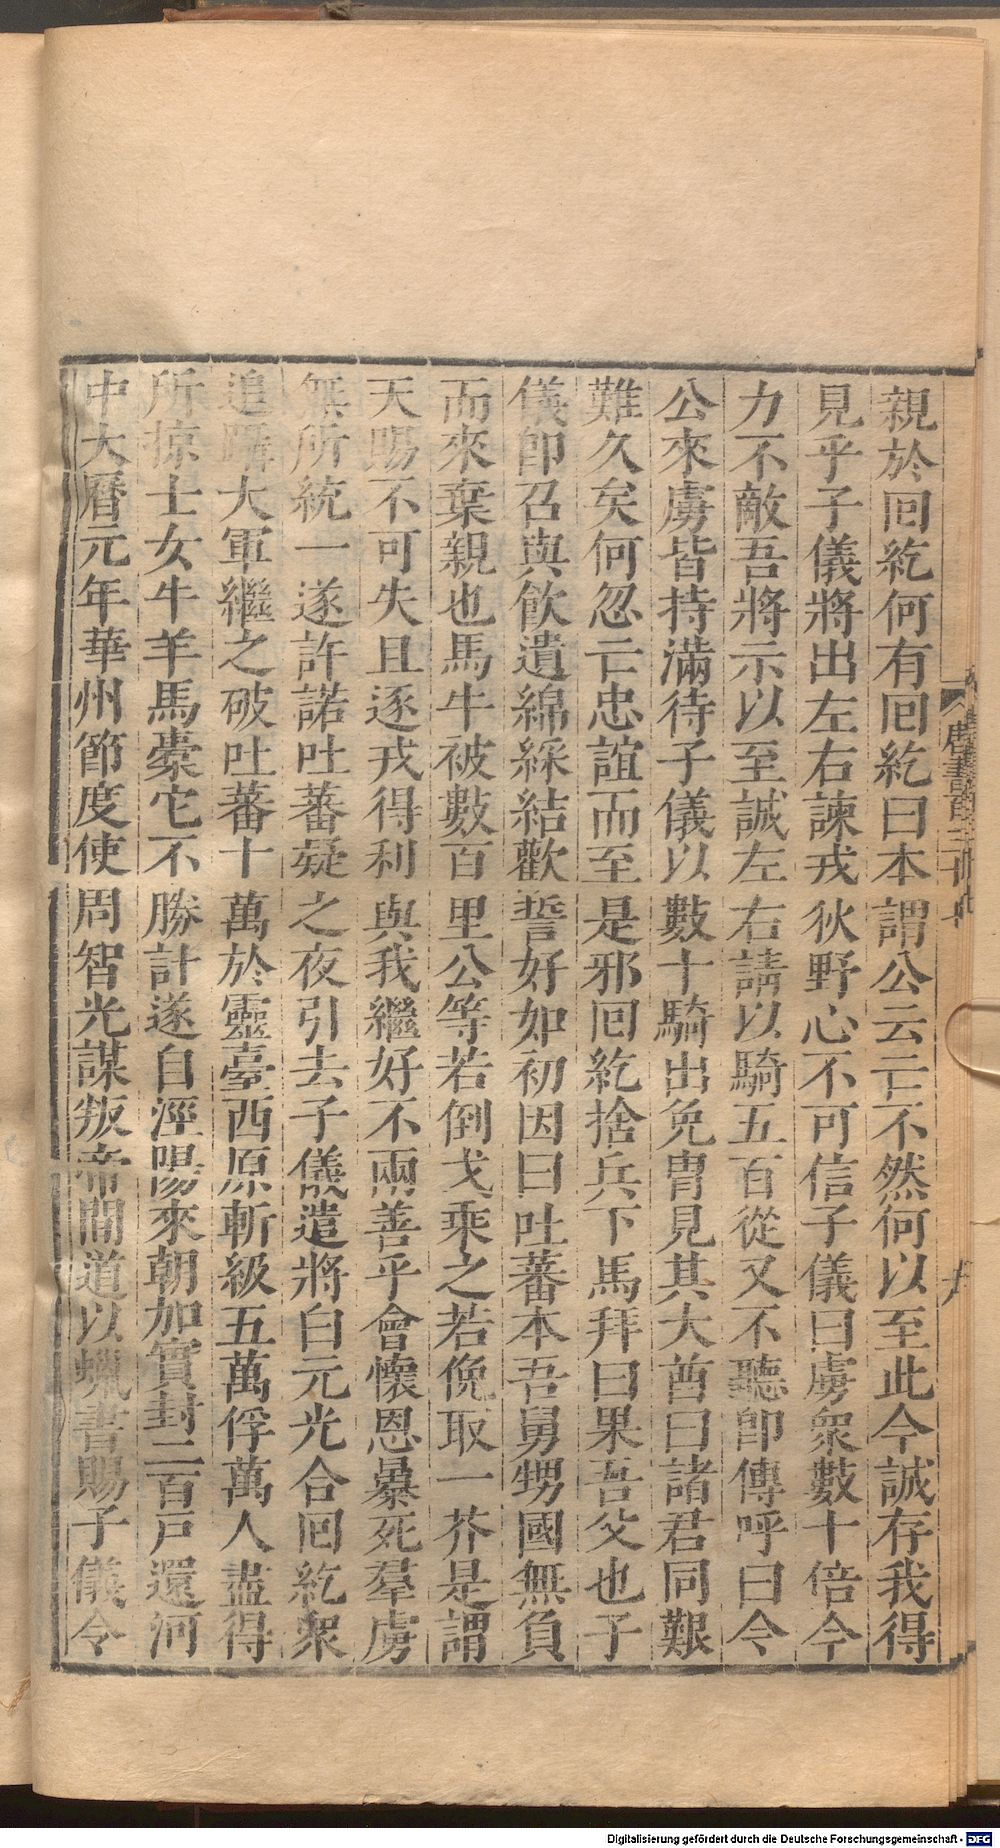 親於囘紇何有囘紇曰本謂公云亡不然何以至此今誠存我得
見乎子儀將出左右諫戎狄野心不可信子儀曰虜衆數十倍今
力不敵吾將示以至誠左右請以騎五百從又不聽即傳呼曰令
公來虜皆持滿待子儀以數十騎出免冑見其大酋曰諸君同艱
難久矣何忽亡忠誼而至是邪囘紇捨兵下馬拜曰果吾父也子
儀即召與飲遺綿綵結歡誓好如初因曰吐蕃本吾舅甥國無負
而來棄親也馬牛被數百里公等若倒戈乘之若俛取一芥是謂
天賜不可失且逐戎得利與我繼好不兩善乎會懷恩暴死羣虜
無所統一遂許諾吐蕃疑之夜引去子儀遣將白元光合囘紇衆
追躡大軍繼之破吐蕃十萬於靈臺西原斬級五萬俘萬人盡得
所掠士女牛羊馬橐它不勝計遂自涇陽來朝加實封二百戸還河
中大曆元年華州節度使周智光謀叛帝間道以蠟書賜子儀令
Digitalisierung gefördert durch die Deutsche Forschungsgemeinschaft - DFG